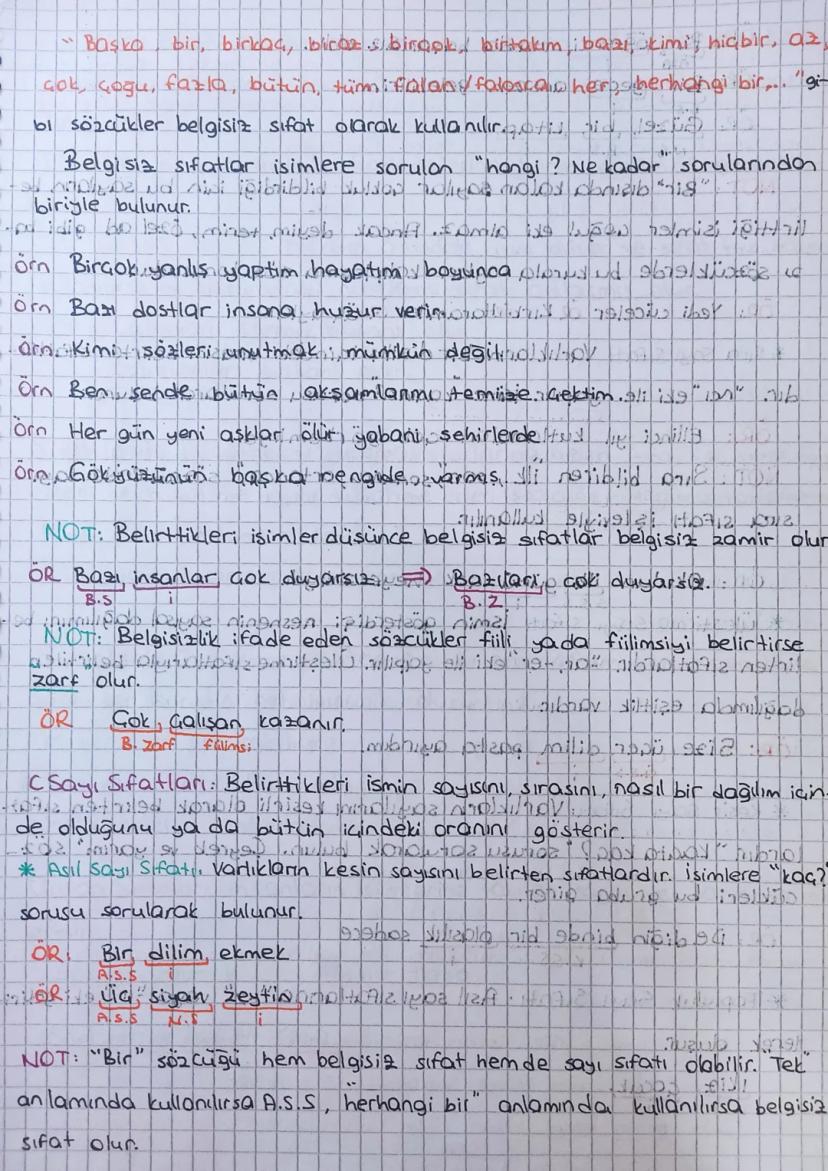 "Başka, bir, birkaç, biraz, birçok, birtakım, bazı, kimi, hiçbir, az,
çok, çoğu, fazla, bütün, tüm, falan/falanca, her, herhangi bir,... "gi-
bi sözcükler belgisiz sıfat olarak kullanılır.
Belgisiz sıfatlar isimlere sorulan "hangi? Ne kadar" sorularından
biriyle bulunur.
örn Birçok yanlış yaptım hayatım boyunca
örn Bazı dostlar insana huzur verir.
örn. Kimi sözleri unutmak mümkün değil.
örn Ben sende bütün akşamlarımı temize çektim.
örn Her gün yeni aşklar ölür yabani şehirlerde
örn Gökyüzünün başka rengide varmış
NOT: Belirttikleri isimler düşünce belgisiz sıfatlar belgisiz zamir olur
ÖR Bazı insanlar çok duyarsız ⇒ Bazıları çok duyarsız.
B.S i B.Z
NOT: Belgisizlik ifade eden sözcükler fiili yada fiilimsiyi belirtirse
zarf olur.
ÖR Çok çalışan kazanır.
B. zarf fiilimsi
C Sayı Sıfatları: Belirttikleri ismin sayısını, sırasını, nasıl bir dağılım için-
de olduğunu ya da bütün içindeki oranını gösterir.
* Asıl Sayı Sıfatı: Varlıkların kesin sayısını belirten sıfatlardır. isimlere "kaç?"
sorusu sorularak bulunur.
ÖR: Bir dilim ekmek
A.S.S i
ÖR: Üç siyah zeytin
A.S.S N.S i
NOT: "Bir" sözcüğü hem belgisiz sıfat hemde sayı sıfatı olabilir. "Tek"
anlamında kullanılırsa A.S.S, "herhangi bir" anlamında kullanılırsa belgisiz
sıfat olur.